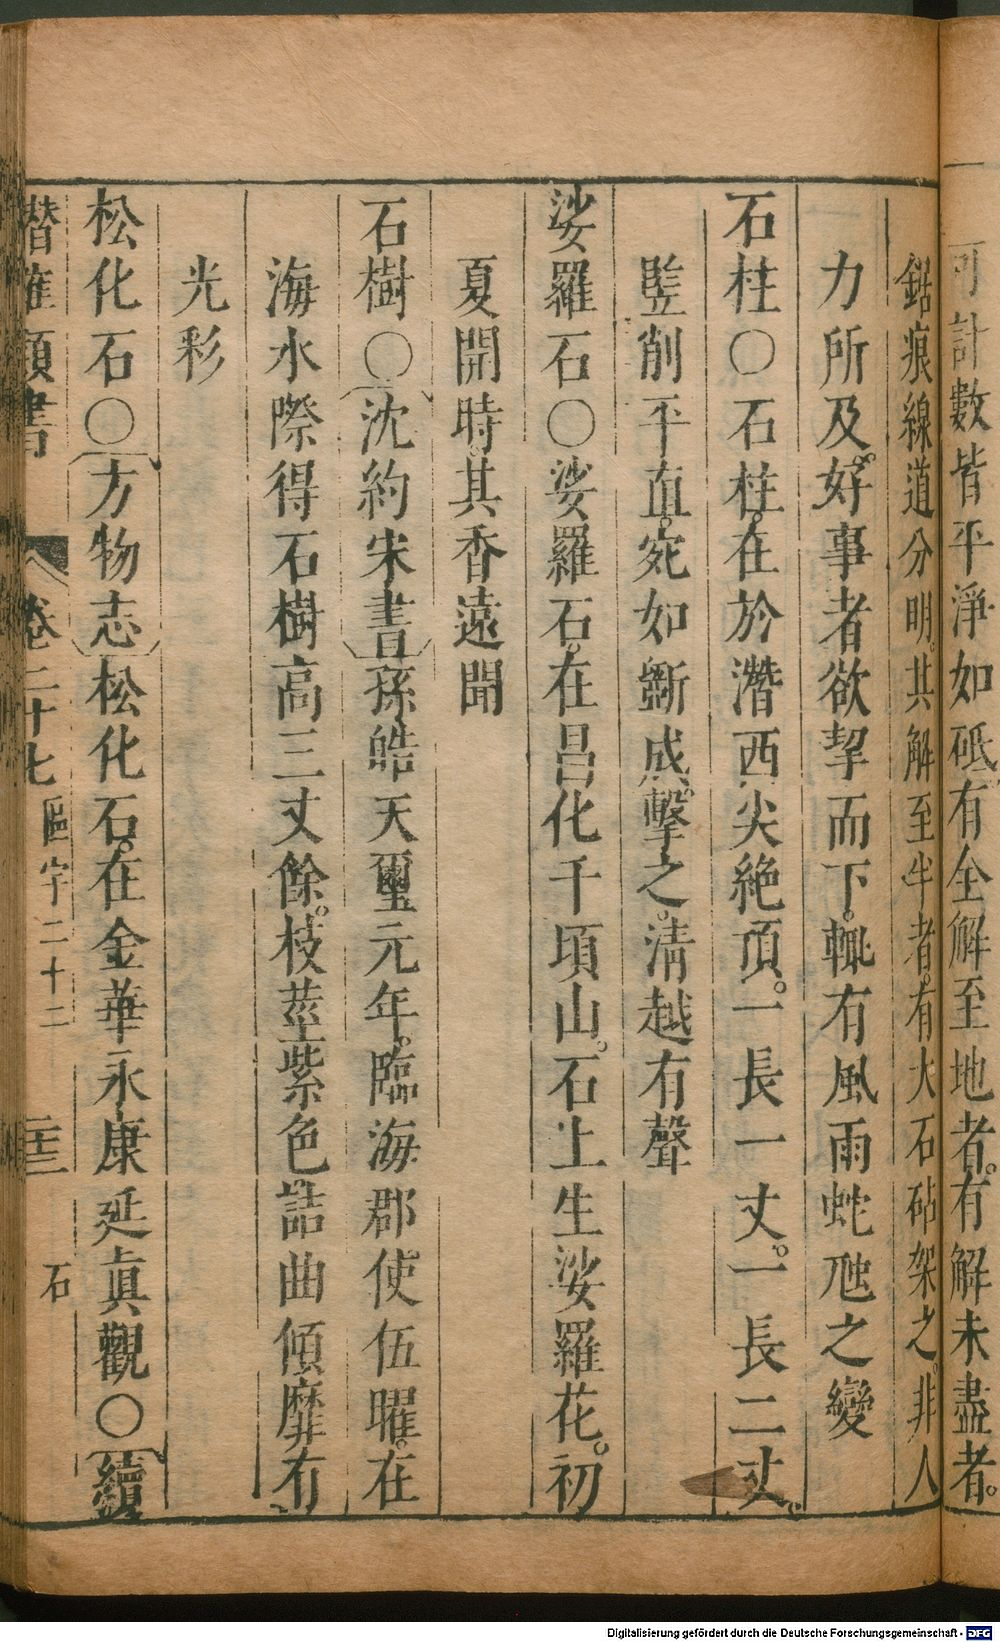 可計數皆平淨如砥有全解至地者。有解未盡者。
鋸痕線道分明。其解至半者。有大石砧架之。非人
力所及。好事者欲挈而下。輙有風雨蛇虺之變
石柱〇石柱。在於潛西尖絶頂。一長一丈。一長二丈。
竪削平直。宛如斵成。擊之。清越有聲
娑羅石〇娑羅石。在昌化千頃山。石上生娑羅花。初
夏開時。其香遠聞
石樹〇沈約宋書孫皓天璽元年。臨海郡。使伍曜。在
海水際得石樹高三丈餘。枝莖紫色。詰曲傾靡有
光彩
松化石〇方物志松化石。在金華永康延眞觀〇續
潛確類書 卷二十七 區宇二十二 石
Digitalisierung gefördert durch die Deutsche Forschungsgemeinschaft - DFG